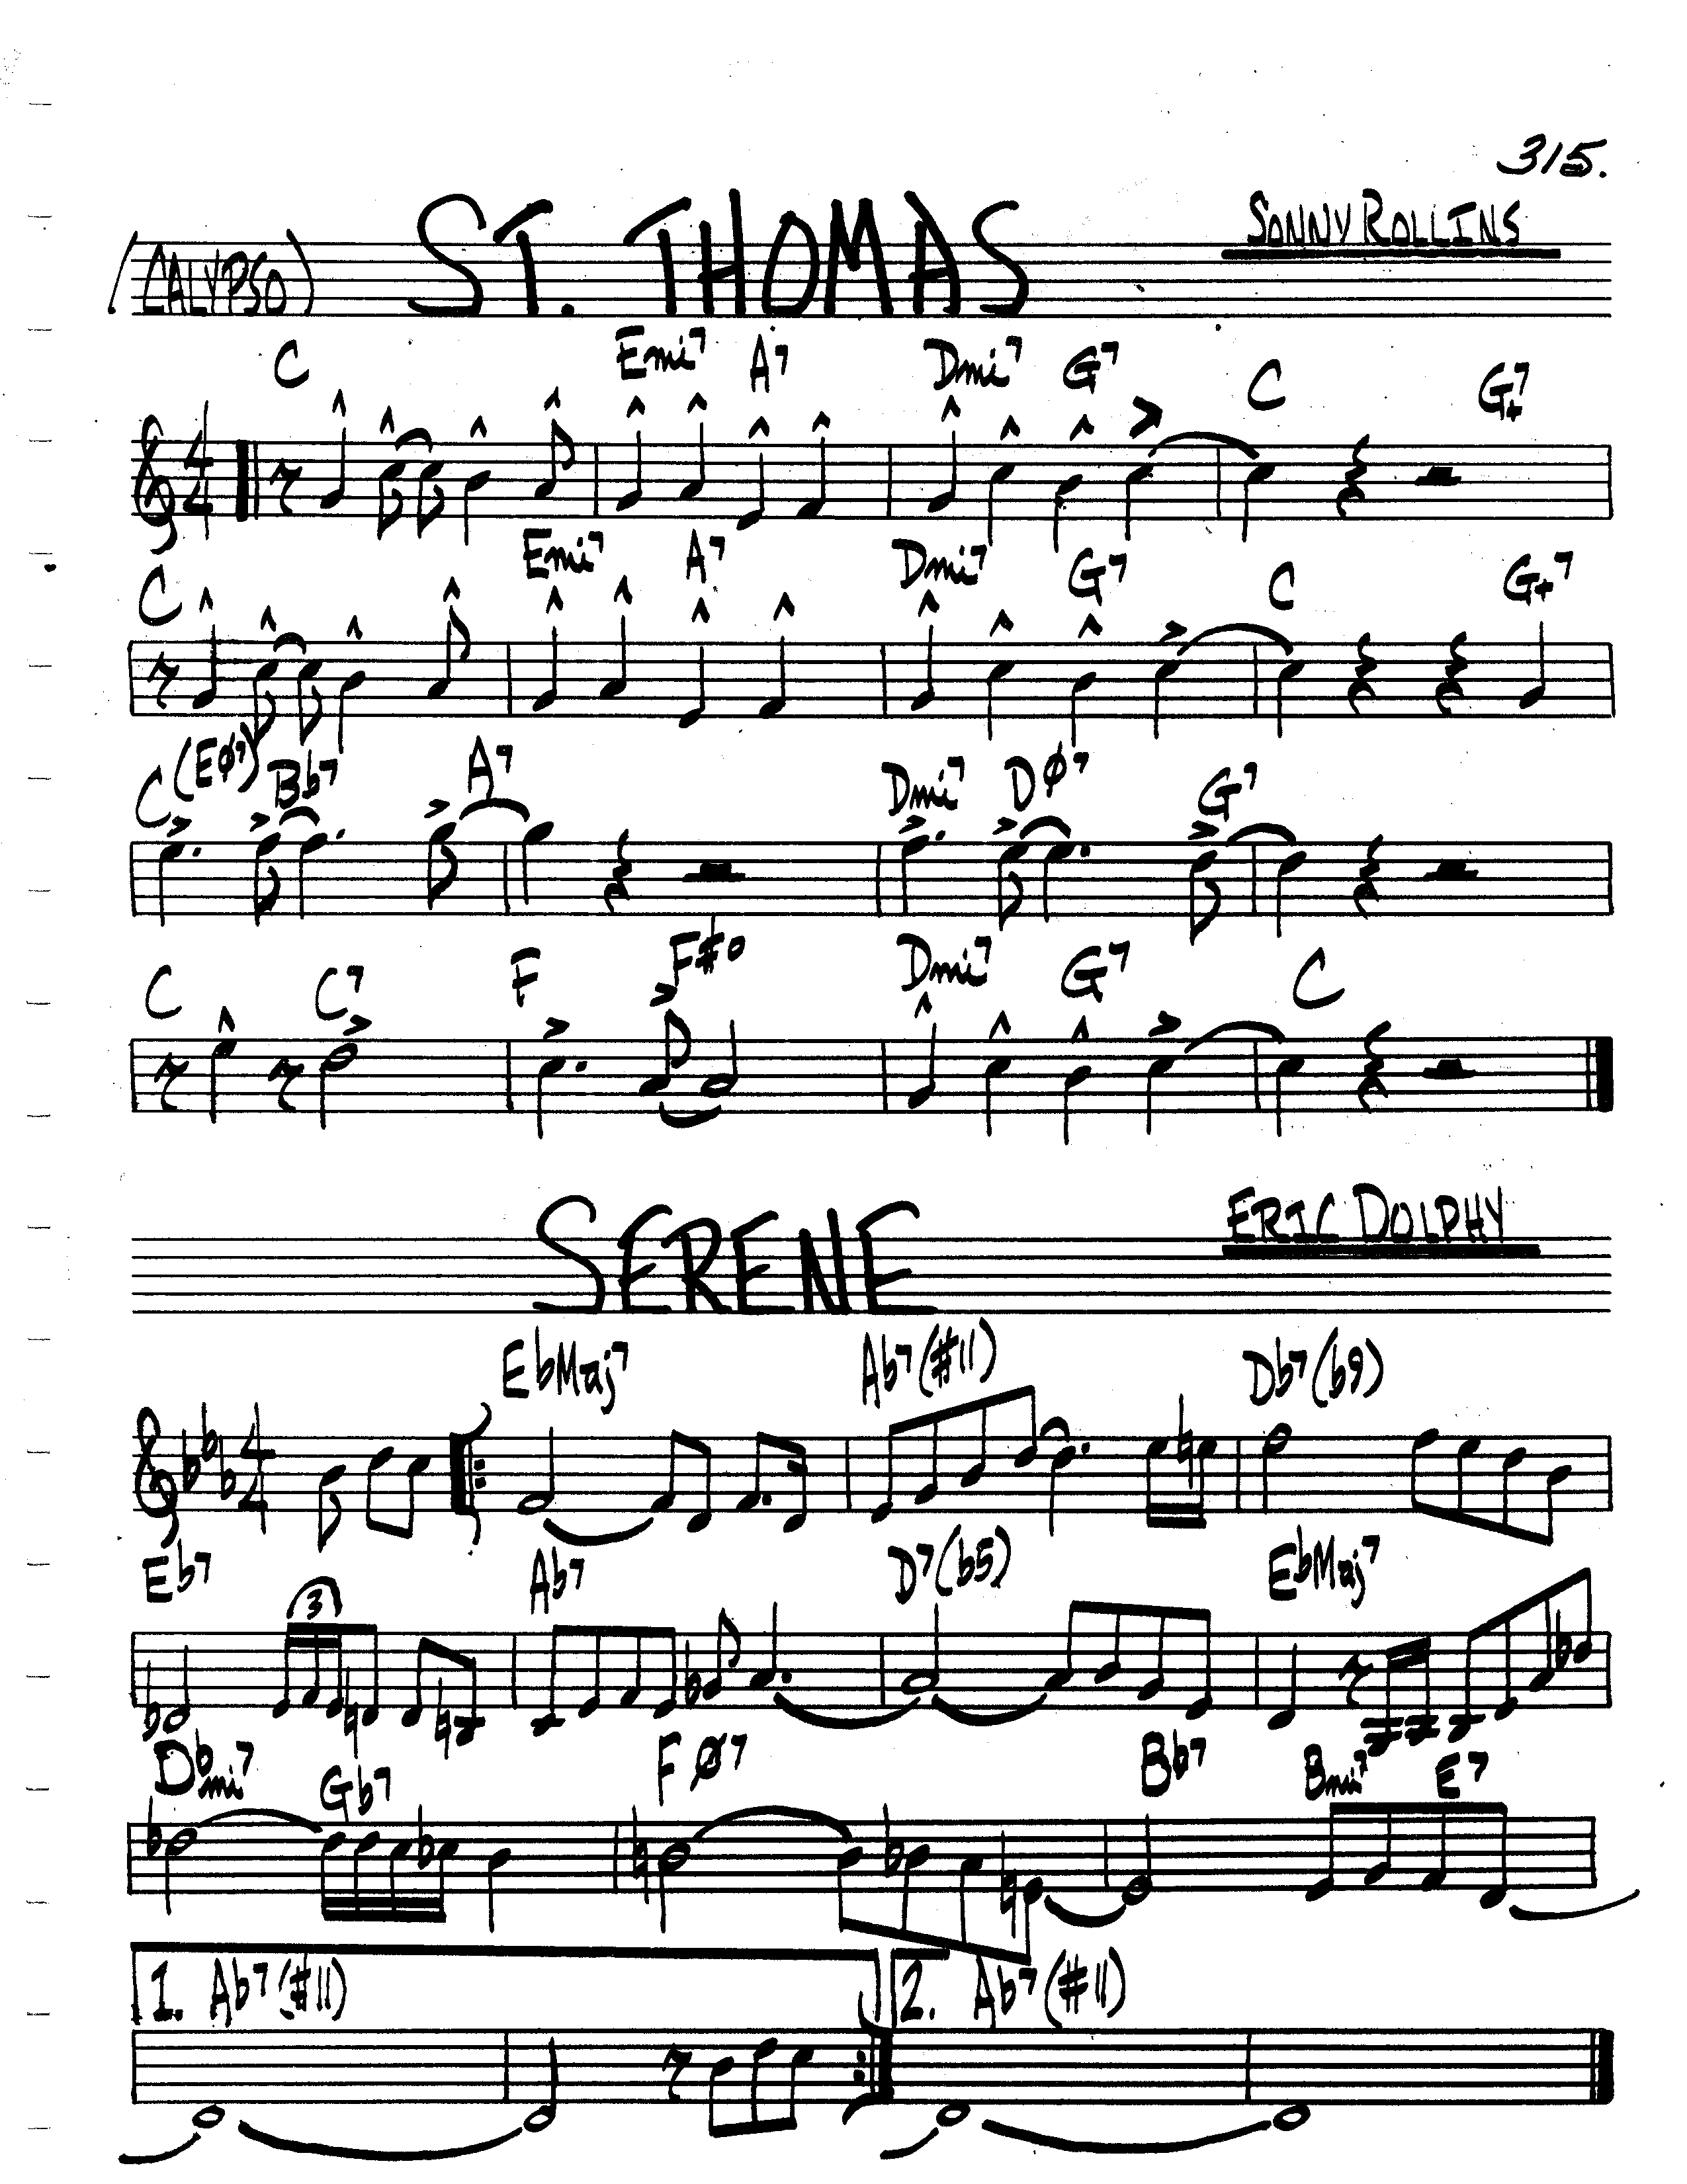 315.
(CALYPSO) ST. THOMAS SONNY ROLLINS
C Emi7 A7 Dmi7 G7 C G+7
4/4
C Emi7 A7 Dmi7 G7 C G+7
C (EØ7) Bb7 A7 Dmi7 DØ7 G7
C C7 F F#o Dmi7 G7 C
SERENE ERIC DOLPHY
EbMaj7 Ab7(#11) Db7(b9)
4/4
Eb7 Ab7 D7(b5) EbMaj7
3
Dbmi7 Gb7 FØ7 Bb7 Bmi7 E7
1. Ab7(#11) 2. Ab7(#11)